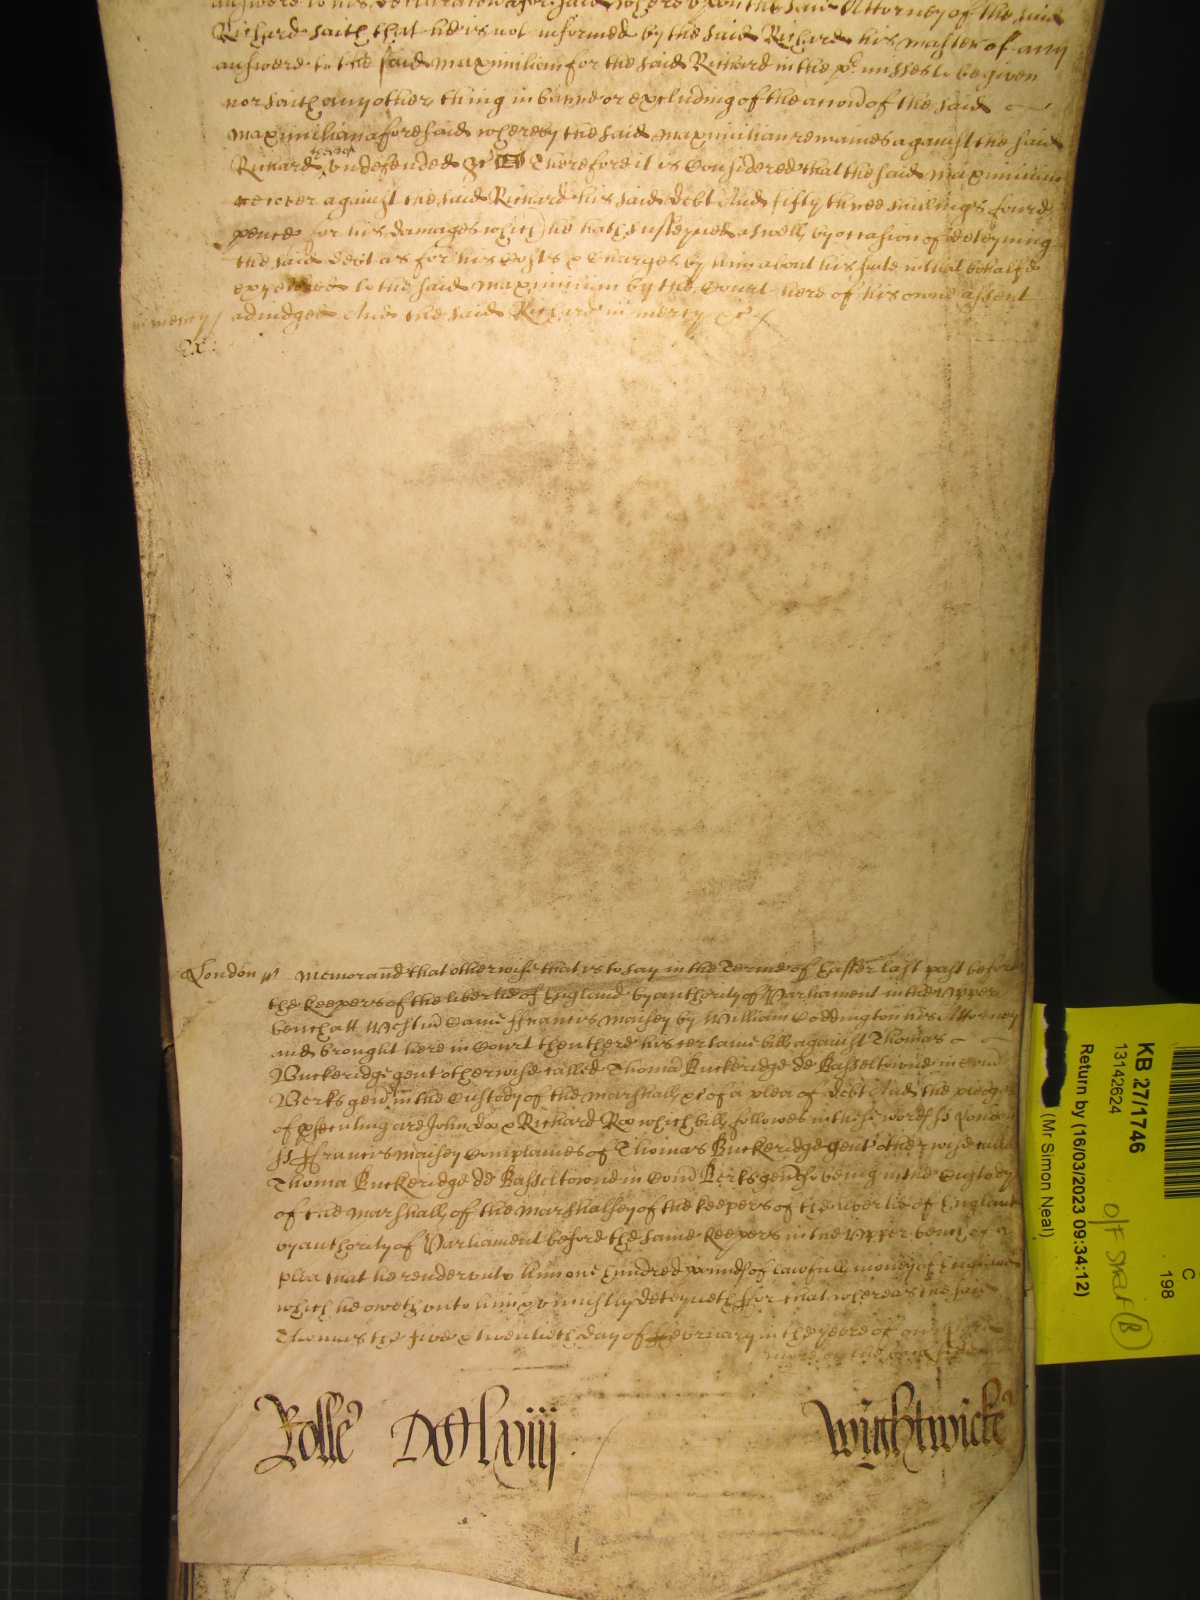 answere to his declaracon aforesaid whereupon the said Attorney of the said
Richard saith that he is not informed by the said Richard his master of any
answere to the said Maximilian for the said Richard in the p'misses to be given
nor saith any other thing in barr or excluding of the accon of the said
Maximilian aforesaid whereby the said Maximilian remaines against the said
Richard thereof undefended &c Therefore it is Considered that the said Maximilian
recover against the said Richard his said debt And fifty three shillings fourd
pence for his damages which he hath susteyned aswell by occasion of deteyning
the said debt as for his Costs & Charges by him about his suite in that behalfe
expended to the said Maximilian by the Court here of his owne assent
in mercy / adiudged And the said Richard in mercy &c /
Ex
London ss Memorand that otherwise that is to say in the Terme of Easter last past before
the keepers of the libertie of England by authority of Parliament in the Upper
bench att Westm Came ffrancis Maisey by William Coddington his Attorney
and brought here in Court then there his certaine bill against Thomas
Buckeridge gent otherwise called Thoma Buckeridge de Basseltowne in Com
Berks gen in the Custody of the Marshall &c of a plea of debt And the pledges
of p'secuting are John Doo & Richard Roo which bill followes in these words ss London
ss ffrancis Maisey Complaines of Thomas Buckeridge gent otherwise called
Thoma Buckeridge de Basseltowne in Com Berks gen being in the Custody
of the Marshall of the Marshalsey of the keepers of the libertie of England
by authority of Parliament before the same keepers in the Upper bench of a
plea that he render unto him one hundred pounds of lawfull money of England
which he oweth unto him & uniustly deteyneth ffor that whereas the said
Thomas the five & twentieth day of ffebruary in the yeere of our
more on the back side
Rolle DCClxviij
Wightwicke
KB 27/1746
13142624
Return by (16/03/2023 09:34:12)
(Mr Simon Neal)
C
198
O/F Shelf (B)